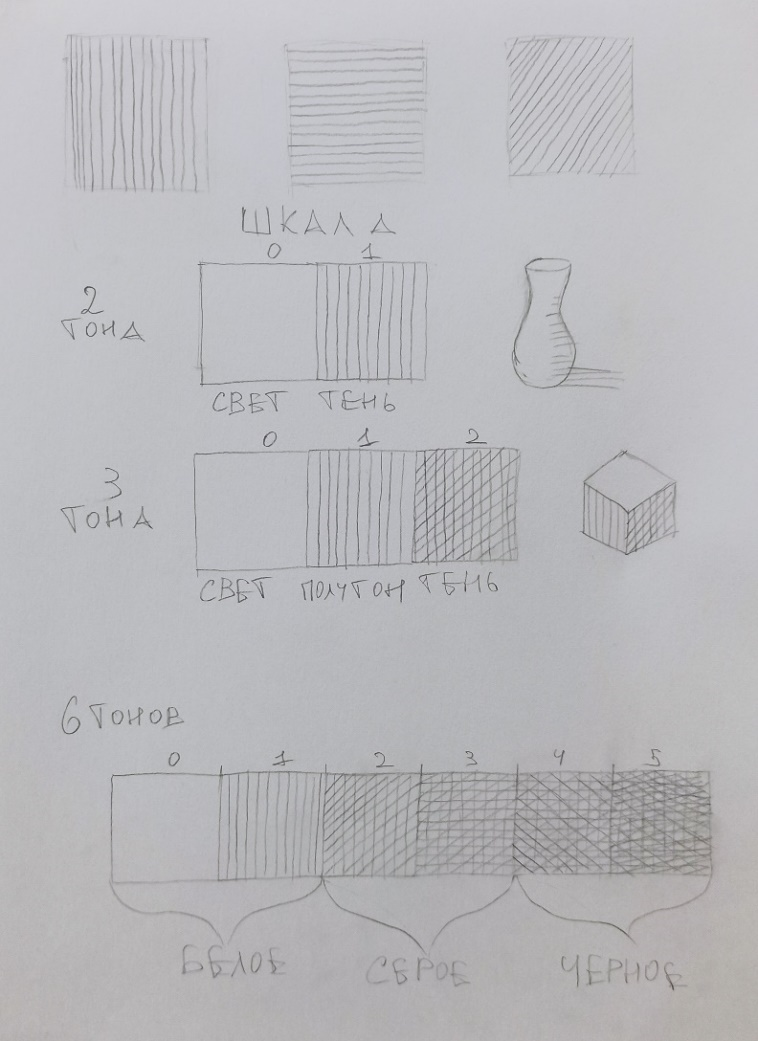 ШКАЛА
0 1
2
ТОНА
СВЕТ ТЕНЬ
0 1 2
3
ТОНА
СВЕТ ПОЛУТОН ТЕНЬ
6 ТОНОВ
0 1 2 3 4 5
БЕЛОЕ СЕРОЕ ЧЕРНОЕ